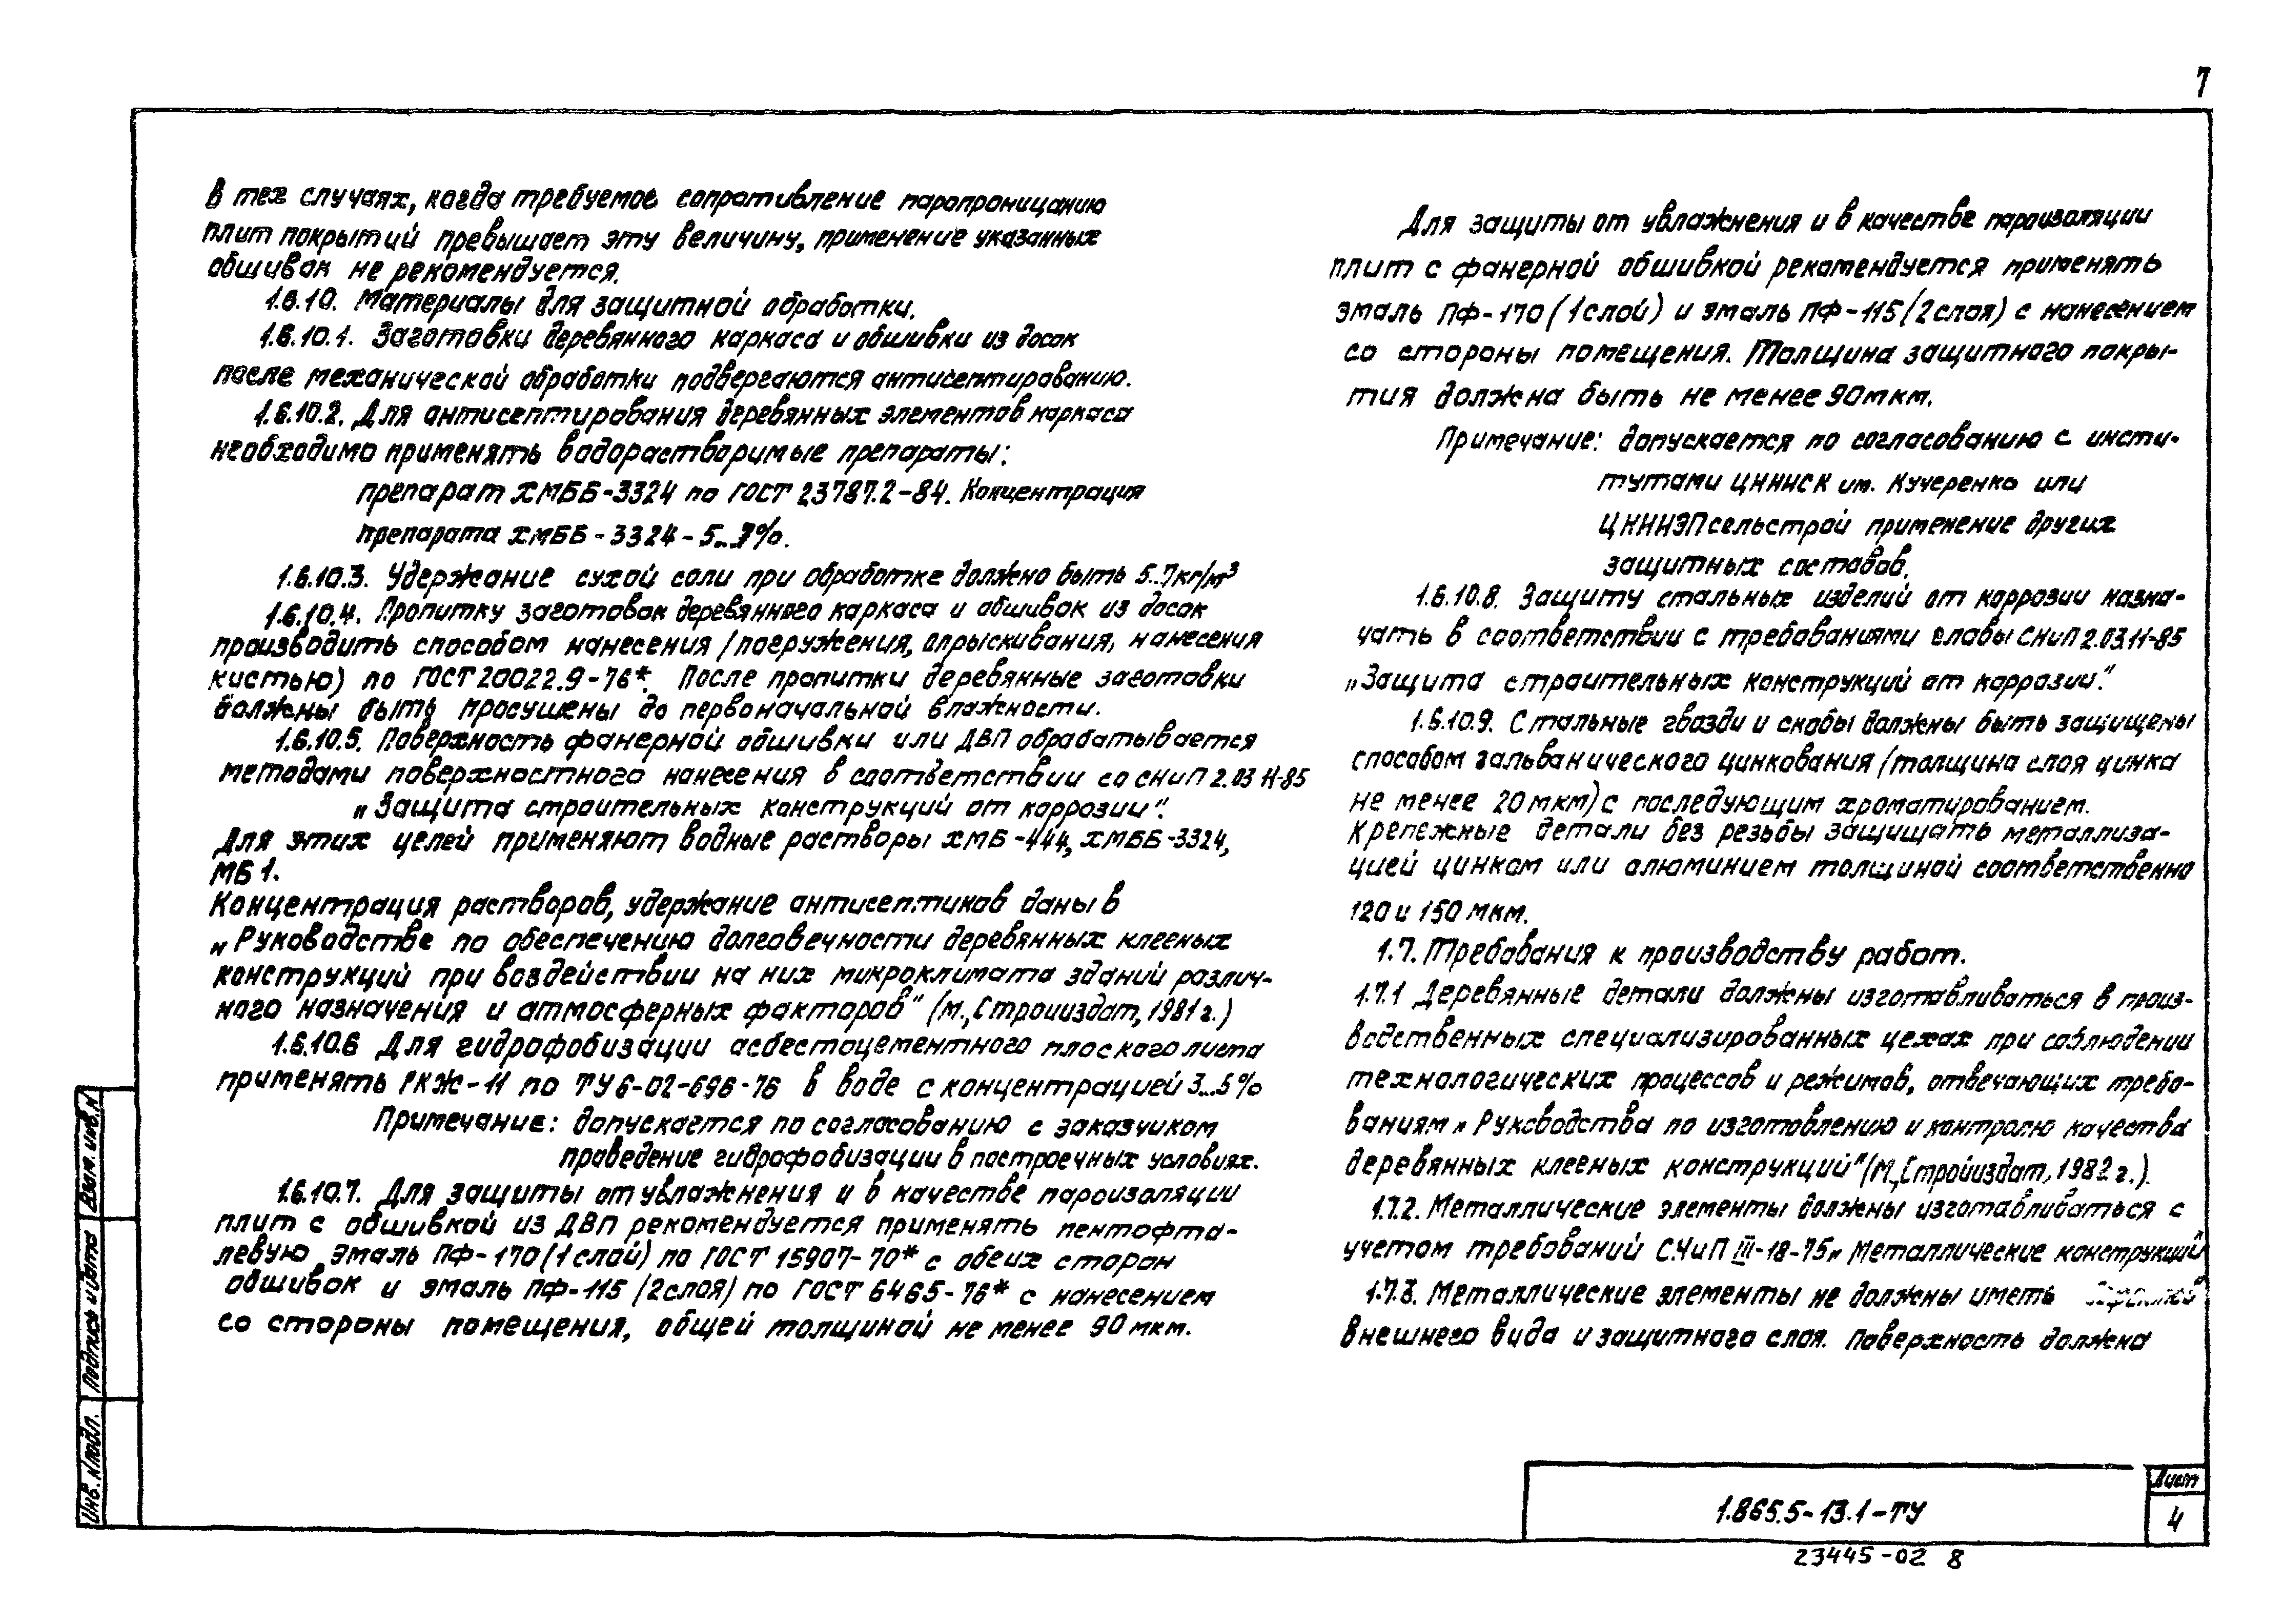 7
В тех случаях, когда требуемое сопротивление паропроницанию
плит покрытий превышает эту величину, применение указанных
обшивок не рекомендуется.
1.6.10. Материалы для защитной обработки.
1.6.10.1. Заготовки деревянного каркаса и обшивки из досок
после механической обработки подвергаются антисептированию.
1.6.10.2. Для антисептирования деревянных элементов каркаса
необходимо применять водорастворимые препараты:
препарат ХМББ-3324 по ГОСТ 23787.2-84. Концентрация
препарата ХМББ-3324-5...7%.
1.6.10.3. Удержание сухой соли при обработке должно быть 5..7кг/м³
1.6.10.4. Пропитку заготовок деревянного каркаса и обшивок из досок
производить способом нанесения /погружения, опрыскивания, нанесения
кистью) по ГОСТ 20022.9-76*. После пропитки деревянные заготовки
должны быть просушены до первоначальной влажности.
1.6.10.5. Поверхность фанерной обшивки или ДВП обрабатывается
методами поверхностного нанесения в соответствии со СНиП 2.03 11-85
„Защита строительных конструкций от коррозии".
Для этих целей применяют водные растворы ХМБ-444, ХМББ-3324,
МБ 1.
Концентрация растворов, удержание антисептиков даны в
„Руководстве по обеспечению долговечности деревянных клееных
конструкций при воздействии на них микроклимата зданий различ-
ного назначения и атмосферных факторов" (М., Стройиздат, 1981г.)
1.6.10.6 Для гидрофобизации асбестоцементного плоского листа
применять РКЖ-11 по ТУ6-02-696-76 в воде с концентрацией 3...5%
Примечание: допускается по согласованию с заказчиком
проведение гидрофобизации в построечных условиях.
1.6.10.7. Для защиты от увлажнения и в качестве пароизоляции
плит с обшивкой из ДВП рекомендуется применять пентофта-
левую эмаль ПФ-170 (1слой) по ГОСТ 15907-70* с обеих сторон
обшивок и эмаль ПФ-115 /2слоя) по ГОСТ 6465-76* с нанесением
со стороны помещения, общей толщиной не менее 90мкм.
Для защиты от увлажнения и в качестве пароизоляции
плит с фанерной обшивкой рекомендуется применять
эмаль ПФ-170 (1слой) и эмаль ПФ-115 /2слоя) с нанесением
со стороны помещения. Толщина защитного покры-
тия должна быть не менее 90мкм.
Примечание: допускается по согласованию с инсти-
тутами ЦНИИСК им. Кучеренко или
ЦНИИЭПсельстрой применение других
защитных составов.
1.6.10.8. Защиту стальных изделий от коррозии назна-
чать в соответствии с требованиями главы СНиП 2.03.11-85
„Защита строительных конструкций от коррозии".
1.6.10.9. Стальные гвозди и скобы должны быть защищены
способом гальванического цинкования /толщина слоя цинка
не менее 20мкм) с последующим хроматированием.
Крепежные детали без резьбы защищать металлиза-
цией цинком или алюминием толщиной соответственно
120 и 150 мкм.
1.7. Требования к производству работ.
1.7.1 Деревянные детали должны изготавливаться в произ-
водственных специализированных цехах при соблюдении
технологических процессов и режимов, отвечающих требо-
ваниям „Руководства по изготовлению и контролю качества
деревянных клееных конструкций" (М., Стройиздат, 1982г.).
1.7.2. Металлические элементы должны изготавливаться с
учетом требований СНиП III-18-75„ Металлические конструкций
1.7.3. Металлические элементы не должны иметь
внешнего вида и защитного слоя. Поверхность должна
Инв. N подл.
Подпись и дата
Взам. инв. N
1.865.5-13.1-ТУ
Лист
4
23445-02 8